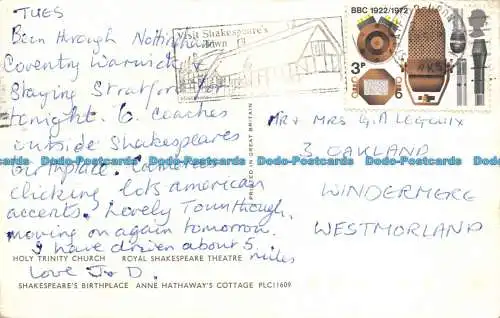 TUES
Been through Nottingham
Coventry Warwick &
Staying Stratford for
tonight. 6 coaches
outside Shakespeares
Birthplace. Cameras
clicking lots american
accents. Lovely Town though,
moving on again tomorrow.
I have driven about 5
miles
Love J & D.
HOLY TRINITY CHURCH ROYAL SHAKESPEARE THEATRE
SHAKESPEARE'S BIRTHPLACE ANNE HATHAWAY'S COTTAGE PLC11609
PRINTED IN GREAT BRITAIN
Visit Shakespeare's
Town
BBC 1922/1972
3P
Mr & MRS G.A
3 OAKLAND
WINDERMERE
WESTMORLAND
Dado-Postcards Dado-Postcards Dado-Postcards Dado-Postcards Dado-Postcards